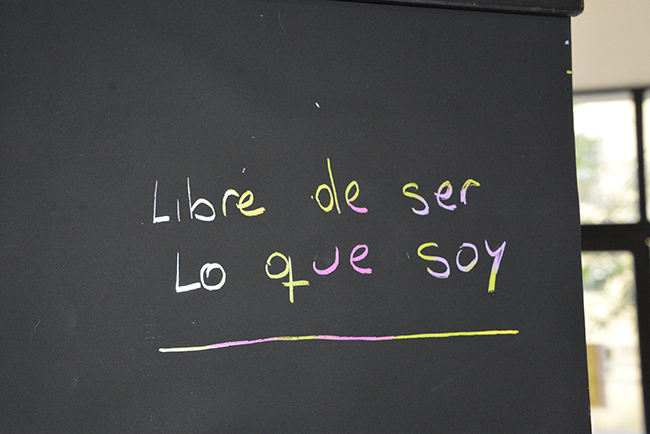 Libre de ser
Lo que soy